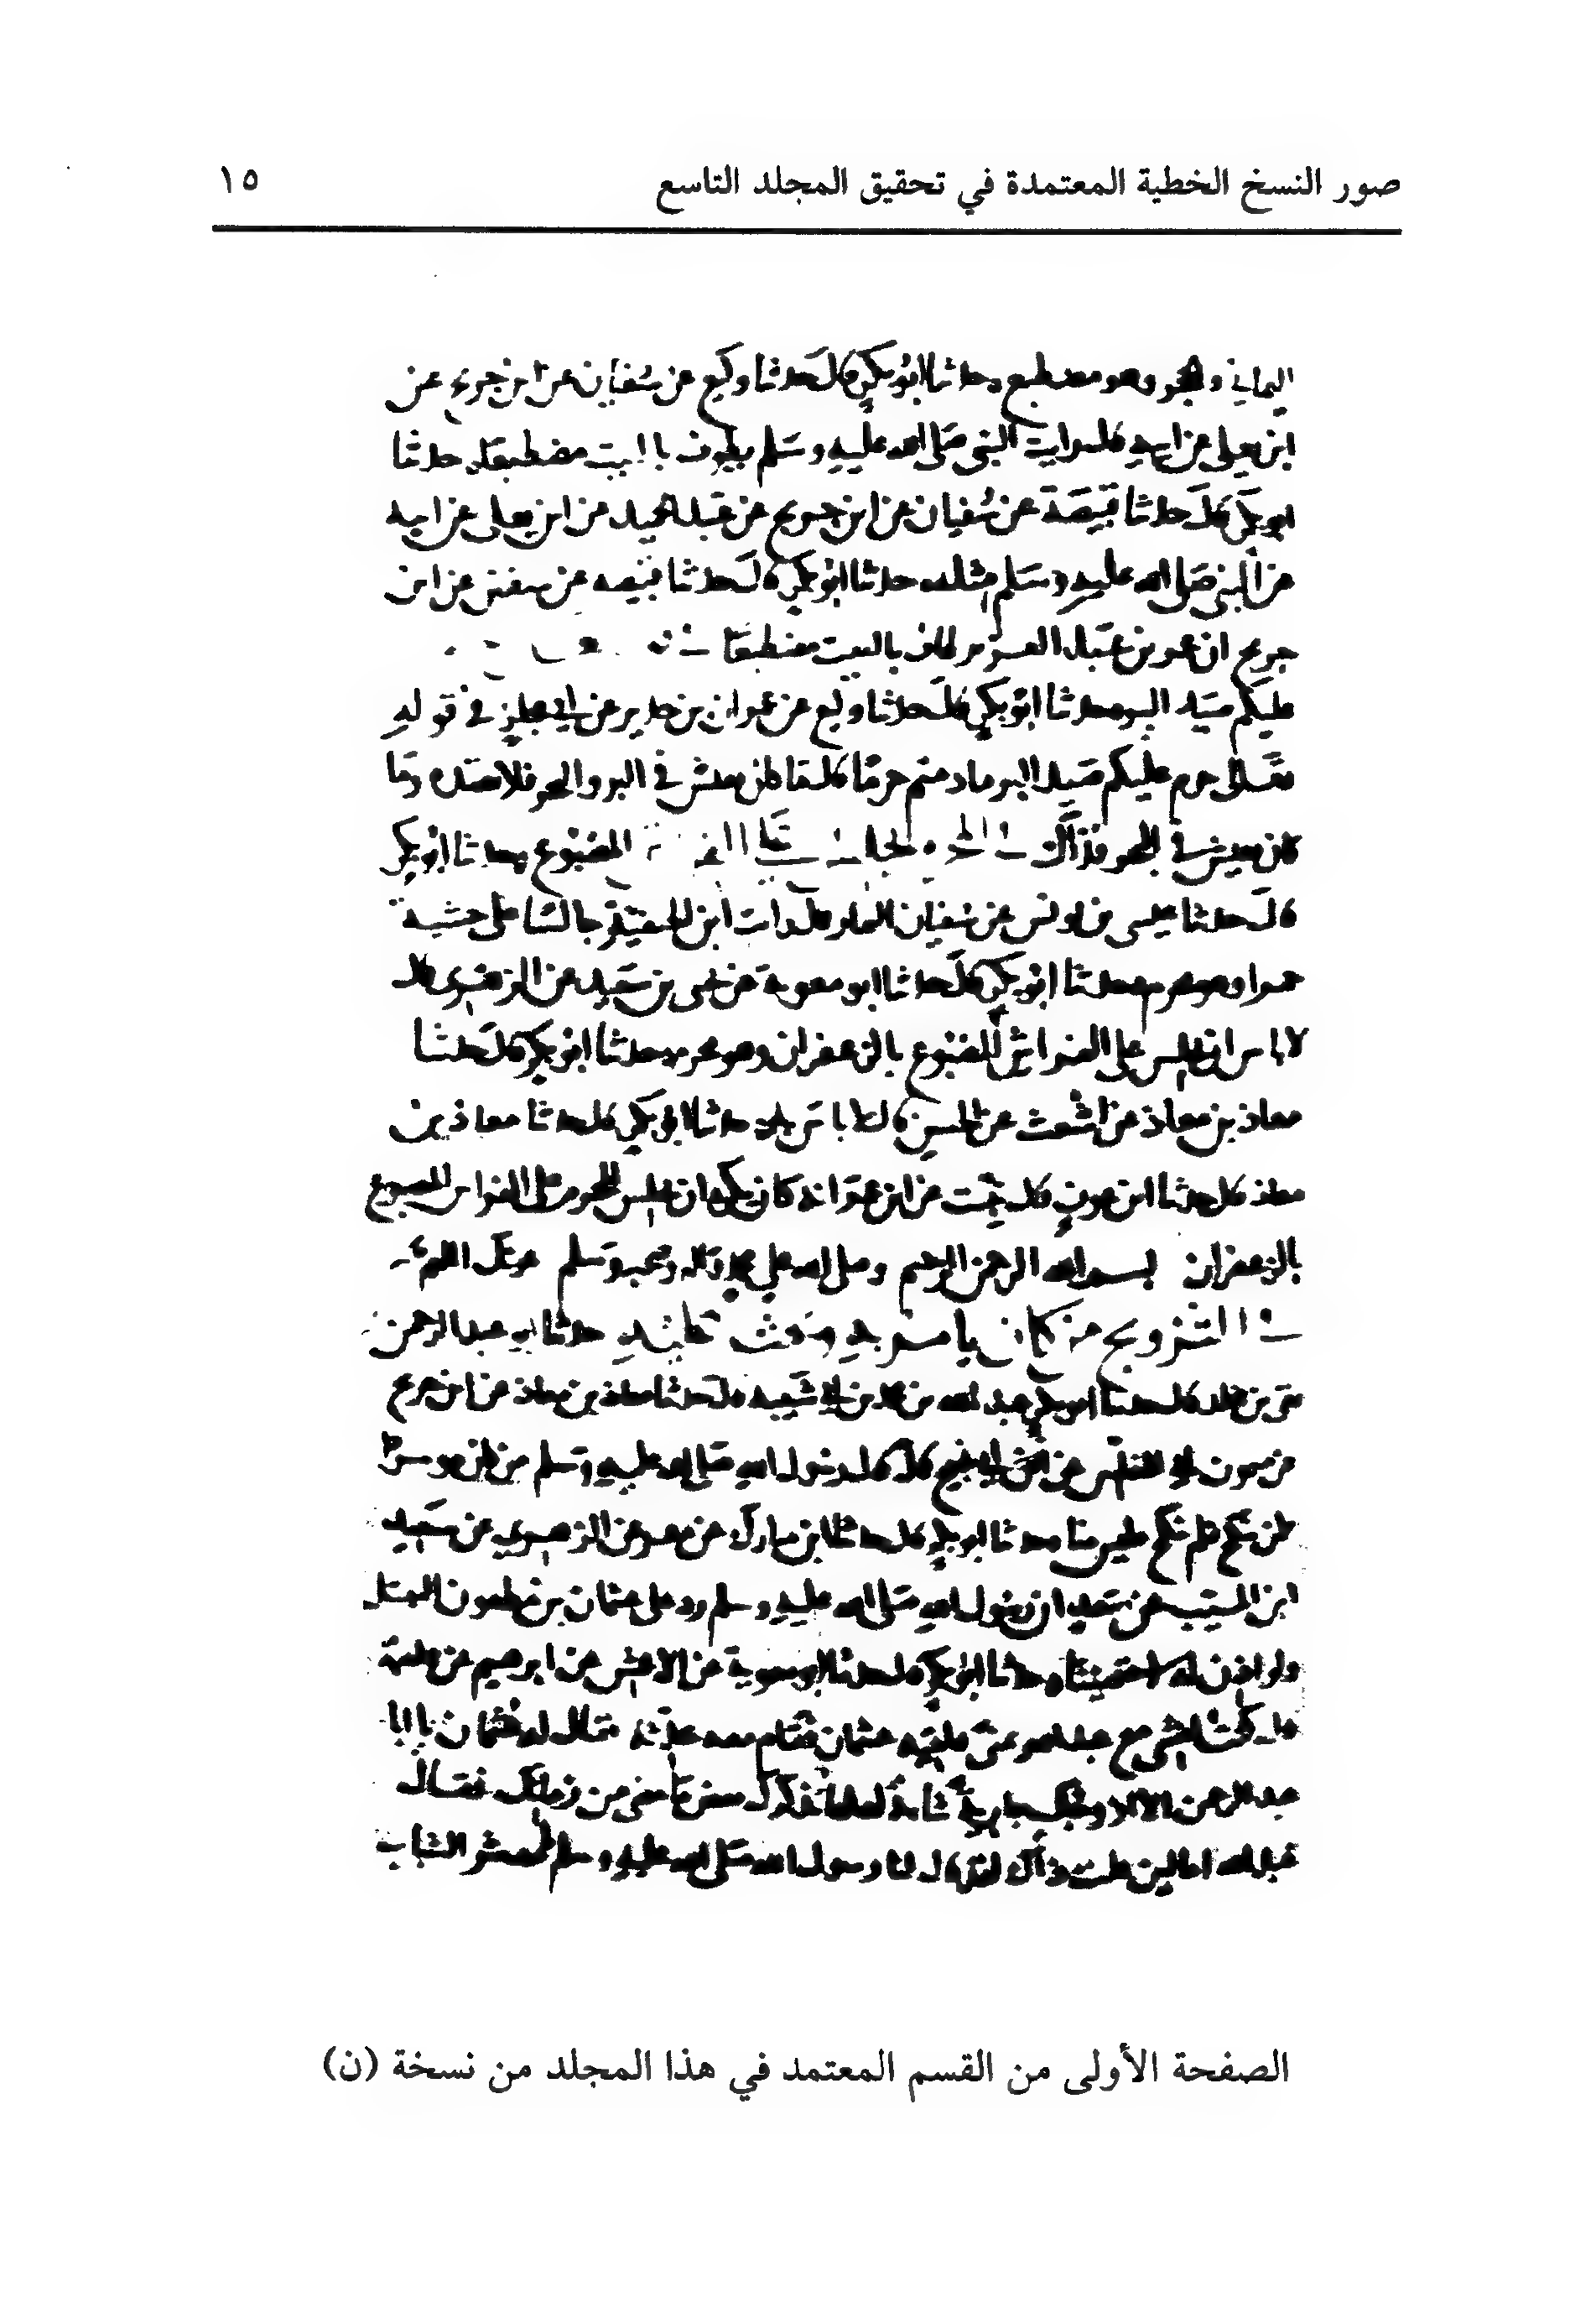 صور النسخ الخطية المعتمدة في تحقيق المجلد التاسع ١٥
اليماني والحجر وهو مضطبع وحدثنا ابو بكر قال حدثنا وكيع عن سفيان عن ابن جريج عن
ابن يعلى عن ابيه قال رايت النبي صلى الله عليه وسلم يطوف بالبيت مضطبعا حدثنا
ابو بكر قال حدثنا قبيصة عن سفيان عن ابن جريج عن عبد الحميد عن ابن يعلى عن ابيه
عن النبي صلى الله عليه وسلم مثله حدثنا ابو بكر قال حدثنا قبيصه عن سفين عن ابن
جريج ان عمر بن عبد العزيز طاف بالبيت مضطبعا
عليكم صيد البر حدثنا ابو بكر قال حدثنا وكيع عن عمران بن حدير عن ابي مجلز في قوله
حرم عليكم صيد البر مادمتم حرما قال ما كان يعيش في البر والبحر فلا تصده وما
كان يعيش في البحر فذاك المصبوغ حدثنا ابو بكر
قال حدثنا عيسى بن يونس عن سفيان قال رايت ابن الحنفية جالسا على حشية
حمرا وهو محرم حدثنا ابو بكر قال حدثنا ابو معوية عن يحيى بن سعيد عن الزهري قال
لا باس ان يجلس على الفراش المصبوغ بالزعفران وهو محرم حدثنا ابو بكر قال حدثنا
معاذ بن معاذ عن اشعث عن الحسن قال لا باس به حدثنا ابو بكر قال حدثنا معاذ بن
معاذ قال حدثنا ابن عون قال عن ابن عمر انه كان يكره ان يجلس المحرم على الفراش المصبوغ
بالزعفران بسم الله الرحمن الرحيم وصلى الله على محمد واله وصحبه وسلم
في التزويج من كان يامر به ويحث عليه حدثنا ابو عبد الرحمن
بقي بن مخلد قال حدثنا ابو بكر عبد الله بن محمد بن ابي شيبه قال حدثنا معاذ بن معاذ عن ابن جريج
عن ميمون ابي المغلس عن ابي نجيح قال قال رسول الله صلى الله عليه وسلم من كان موسرا
لان ينكح فلم ينكح فليس منا حدثنا ابو بكر قال حدثنا ابن مبارك عن معمر عن الزهري عن سعيد
ابن المسيب عن سعد ان رسول الله صلى الله عليه وسلم رد على عثمان بن مظعون التبتل
ولو اذن له لاختصينا حدثنا ابو بكر قال حدثنا ابو معوية عن الاعمش عن ابرهيم عن علقمة
قال كنت امشي مع عبد الله بمنى فلقيه عثمان فقام معه يحدثه فقال له عثمان يا ابا
عبد الرحمن الا ازوجك جارية شابة لعلها تذكرك بعض ما مضى من زمانك فقال
عبد الله اما لئن قلت ذاك لقد قال لنا رسول الله صلى الله عليه وسلم يا معشر الشباب
الصفحة الأولى من القسم المعتمد في هذا المجلد من نسخة (ن)